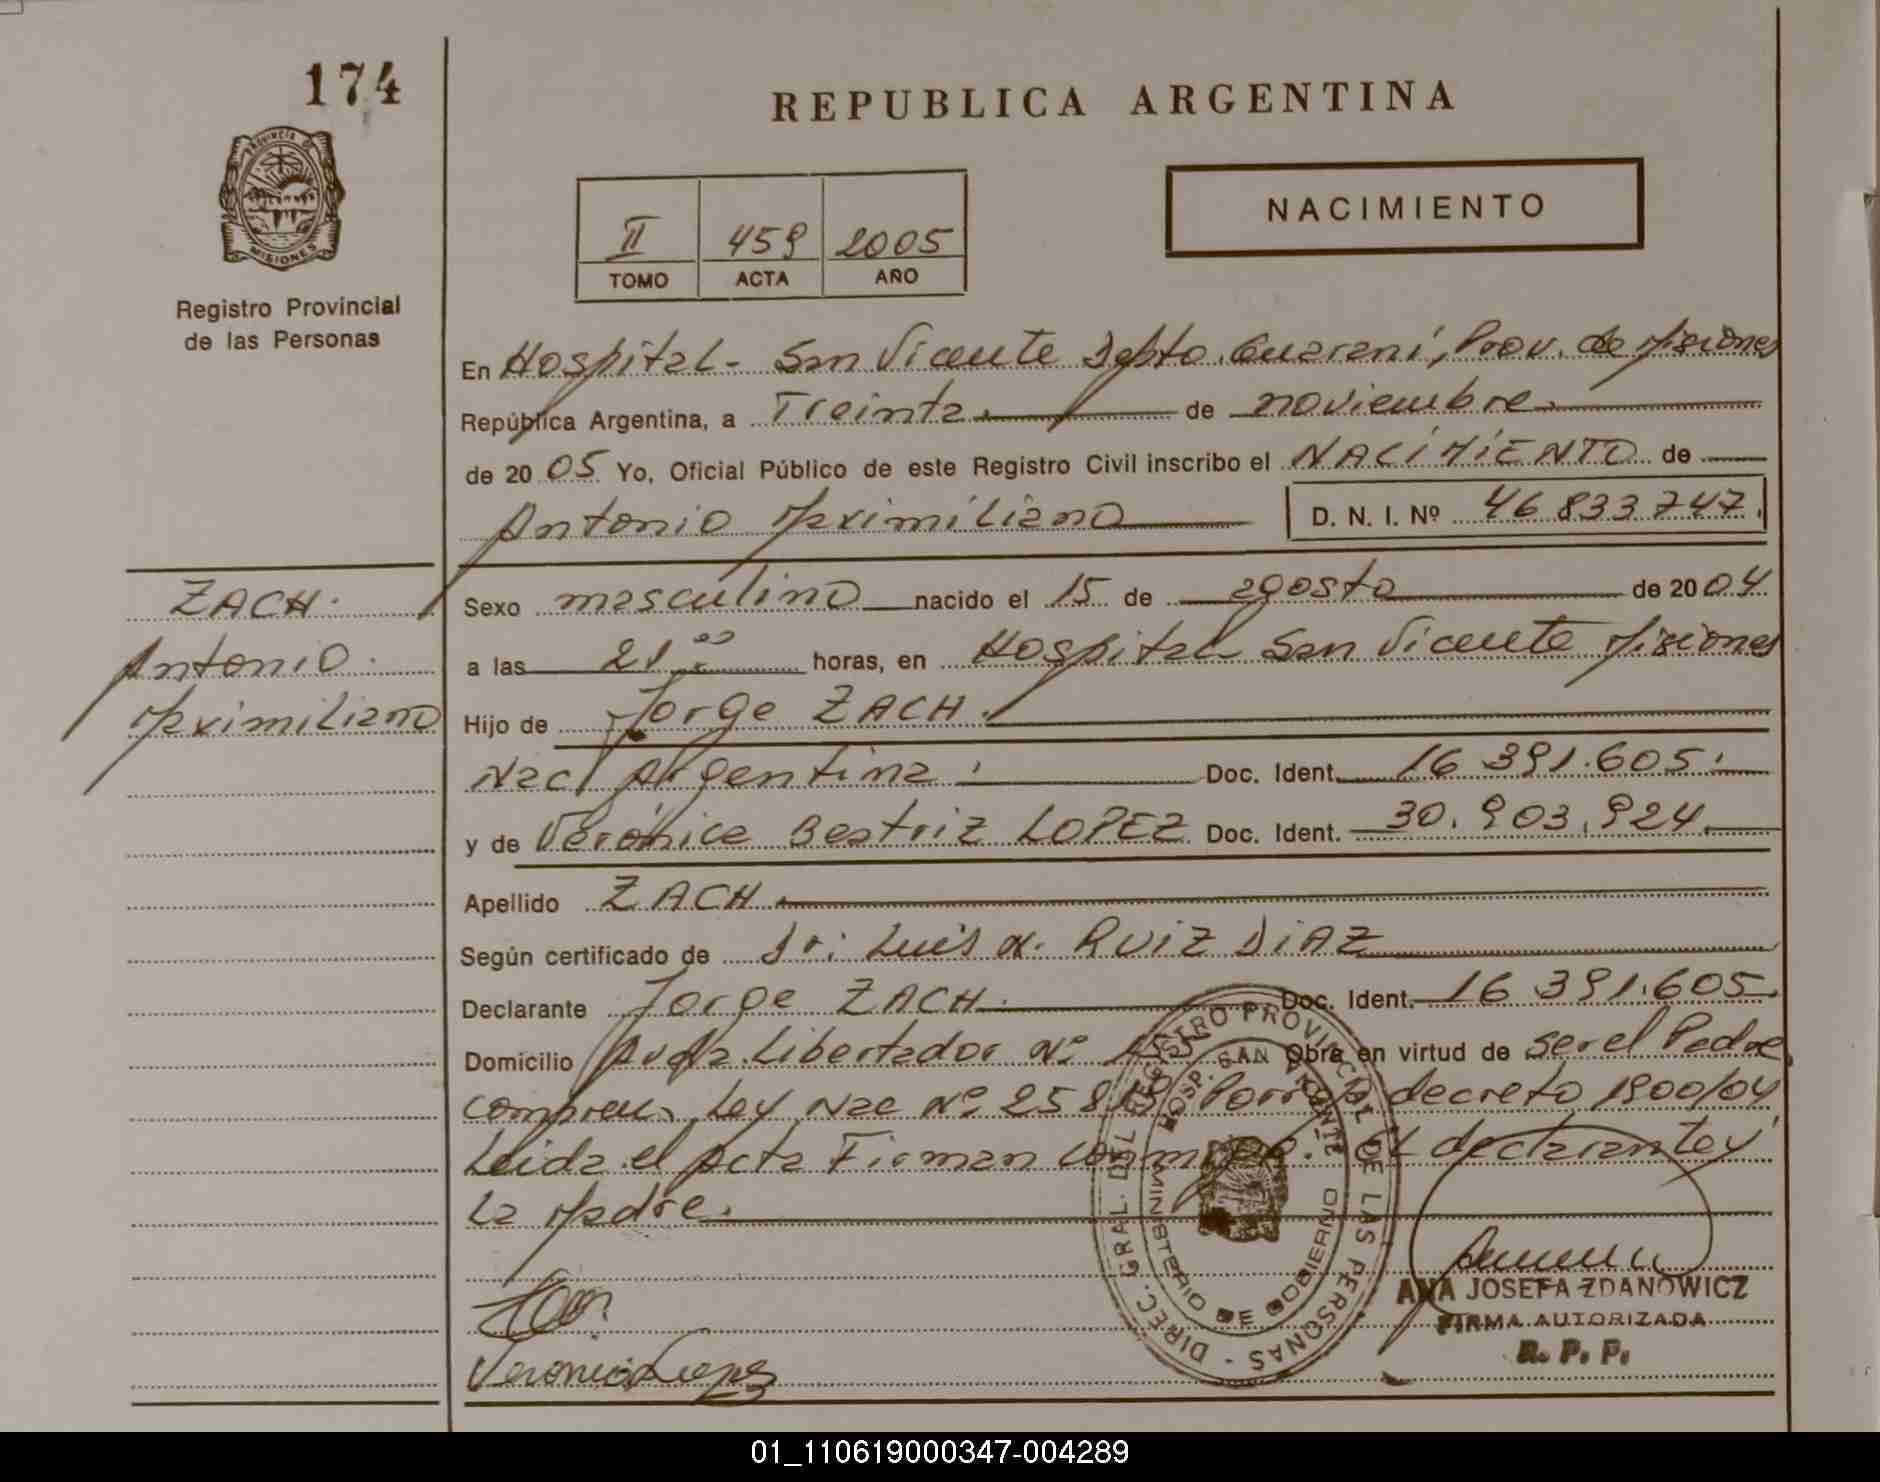 174
PROVINCIA DE
MISIONES
Registro Provincial
de las Personas
REPUBLICA ARGENTINA
II 459 2005
TOMO ACTA AÑO
NACIMIENTO
En Hospital - San Vicente Depto. Guaraní, Prov. de Misiones
República Argentina, a Treinta. de noviembre.
de 2005 Yo, Oficial Público de este Registro Civil inscribo el NACIMIENTO de
Antonio Maximiliano D. N. I. Nº 46 833 747.
ZACH.
Antonio.
Maximiliano
Sexo masculino nacido el 15 de agosto de 2004
a las 21 00 horas, en Hospital San Vicente Misiones
Hijo de Jorge ZACH.
Nac. Argentina. Doc. Ident. 16 391.605.
y de Verónica Beatriz LOPEZ Doc. Ident. 30.903.924.
Apellido ZACH
Según certificado de Dr. Luis A. RUIZ DIAZ
Declarante Jorge ZACH. Doc. Ident. 16 391.605.
Domicilio Avda. Libertador Nº Obra en virtud de ser el Padre
compren. Ley Nac Nº 25 decreto 1900/04
Leida el Acta Firman el declarante y
La Madre.
DIREC. GRAL. DEL REGISTRO PROVINCIAL DE LAS PERSONAS -
HOSP. SAN VICENTE
MINISTERIO DE GOBIERNO
Veronica Lopez
ANA JOSEFA ZDANOWICZ
FIRMA AUTORIZADA
R. P. P.
01_110619000347-004289